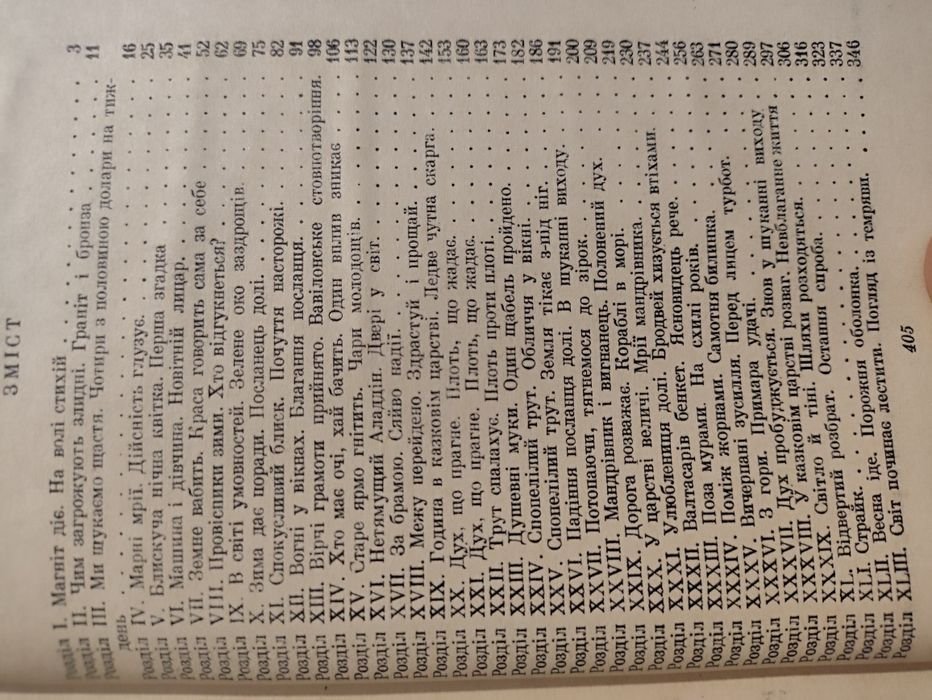 ЗМІСТ
Розділ I. Магніт діє. На волі стихій . . . . . . 3
Розділ II. Чим загрожують злидні. Граніт і бронза . . . 11
Розділ III. Ми шукаємо щастя. Чотири з половиною долари на тиж-
день . . . . . . 16
Розділ IV. Марні мрії. Дійсність глузує. . . . . . 25
Розділ V. Блискуча нічна квітка. Перша згадка . . . . . 35
Розділ VI. Машина і дівчина. Новітній лицар. . . . . . 41
Розділ VII. Земне вабить. Краса говорить сама за себе . . . 52
Розділ VIII. Провісники зими. Хто відгукнеться? . . . . 62
Розділ IX. В світі умовностей. Зелене око заздрощів. . . . 69
Розділ X. Зима дає поради. Посланець долі. . . . . . 75
Розділ XI. Спокусливий блиск. Почуття насторожі. . . . . 82
Розділ XII. Вогні у вікнах. Благання посланця. . . . . . 91
Розділ XIII. Вірчі грамоти прийнято. Вавілонське стовпотворіння. 98
Розділ XIV. Хто має очі, хай бачить. Один вплив зникає . . 106
Розділ XV. Старе ярмо гнітить. Чари молодощів. . . . . 113
Розділ XVI. Нетямущий Аладдін. Двері у світ. . . . . . 122
Розділ XVII. За брамою. Сяйво надії. . . . . . 130
Розділ XVIII. Межу перейдено. Здрастуй і прощай. . . . . 137
Розділ XIX. Година в казковім царстві. Ледве чутна скарга. . 142
Розділ XX. Дух, що прагне. Плоть, що жадає. . . . . . 153
Розділ XXI. Дух, що прагне. Плоть, що жадає. . . . . . 160
Розділ XXII. Трут спалахує. Плоть проти плоті. . . . . 163
Розділ XXIII. Душевні муки. Один щабель пройдено. . . . 173
Розділ XXIV. Спопелілий трут. Обличчя у вікні. . . . . 182
Розділ XXV. Спопелілий трут. Земля тікає з-під ніг. . . . 186
Розділ XXVI. Падіння посланця долі. В шуканні виходу. . . 191
Розділ XXVII. Потопаючи, тягнемося до зірок. . . . . 200
Розділ XXVIII. Мандрівник і вигнанець. Полонений дух. . . 209
Розділ XXIX. Дорога розважає. Кораблі в морі. . . . . 219
Розділ XXX. У царстві величі. Мрії мандрівника. . . . . 230
Розділ XXXI. Улюблениця долі. Бродвей хизується втіхами. . 237
Розділ XXXII. Валтасарів бенкет. Ясновидець рече. . . . . 244
Розділ XXXIII. Поза мурами. На схилі років. . . . . . 256
Розділ XXXIV. Поміж жорнами. Самотня билинка. . . . . 263
Розділ XXXV. Вичерпані зусилля. Перед лицем турбот. . . . 271
Розділ XXXVI. З гори. Примара удачі. . . . . . 280
Розділ XXXVII. Дух пробуджується. Знов у шуканні виходу 289
Розділ XXXVIII. У казковім царстві розваг. Невблаганне життя 297
Розділ XXXIX. Світло й тіні. Шляхи розходяться. . . . . 306
Розділ XL. Відвертий розбрат. Остання спроба. . . . . . 316
Розділ XLI. Страйк. . . . . . 323
Розділ XLII. Весна іде. Порожня оболонка. . . . . . 337
Розділ XLIII. Світ починає лестити. Погляд із темряви. . . . 346
405